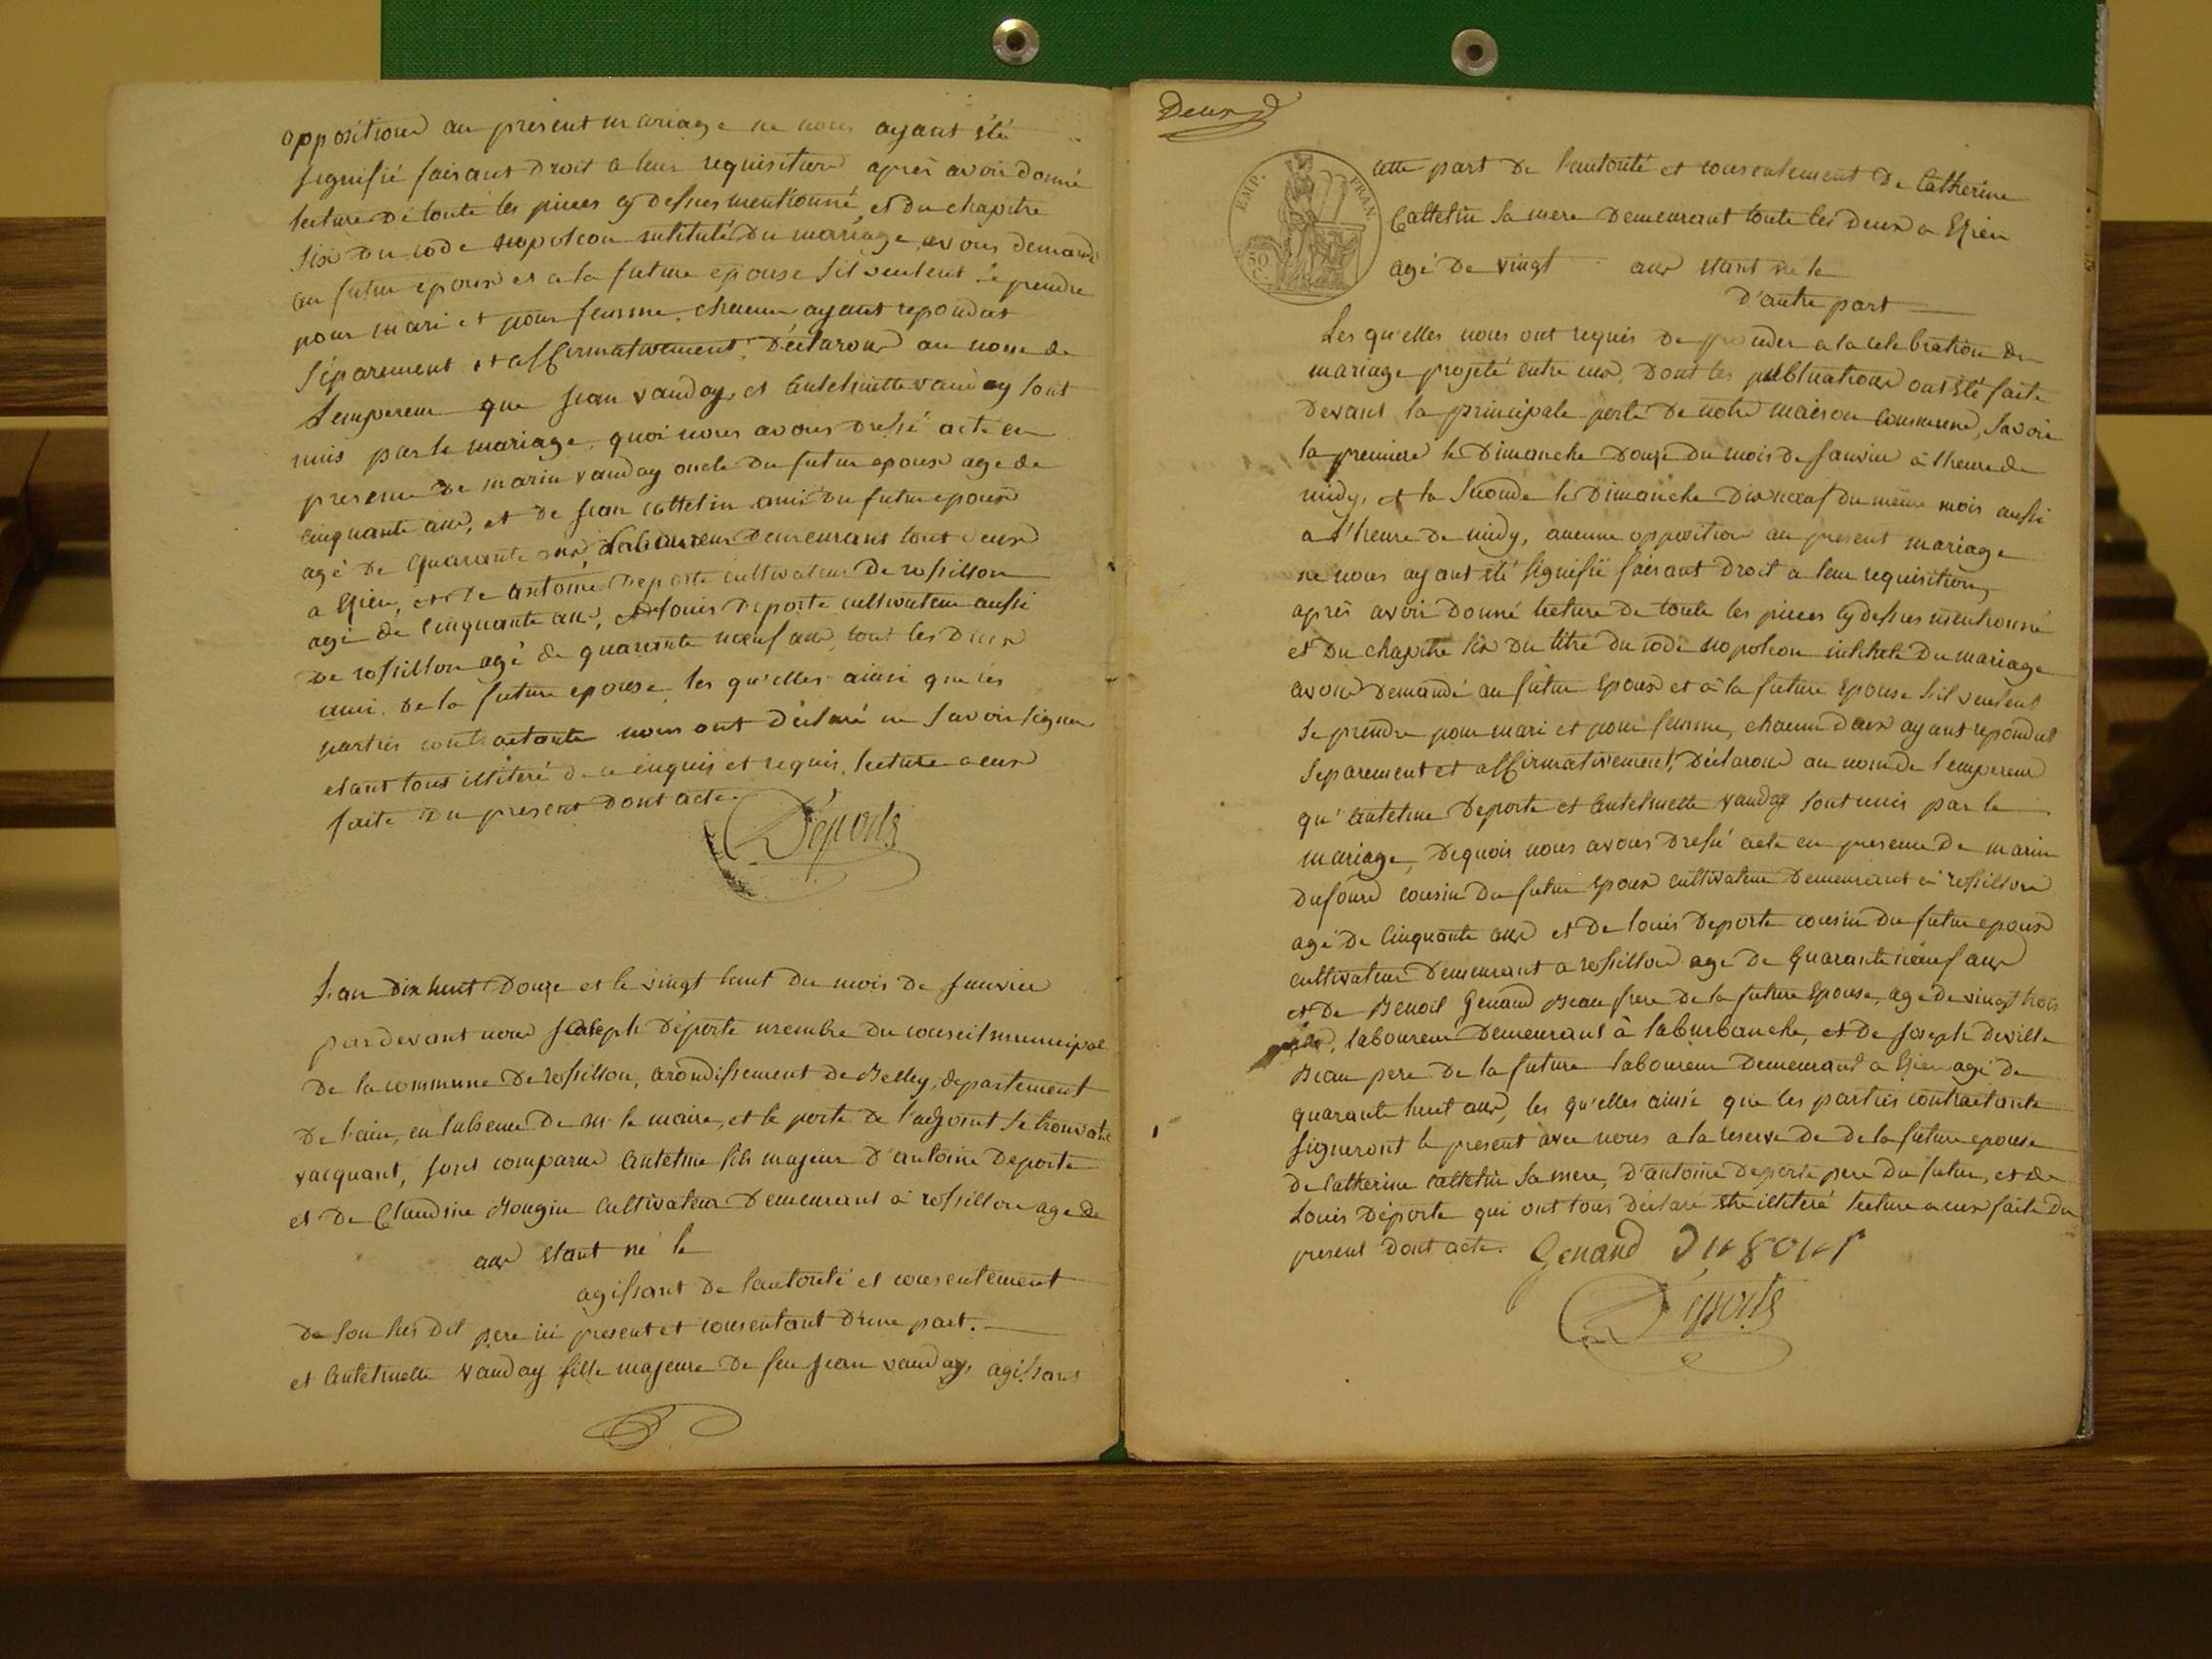 opposition au present mariage ne nous ayant été
signifié faisant droit a leur requisition après avoir donné
lecture de toute les pieces cy dessus mentionné, et du chapitre
six du code nopoleon intitulé Du mariage, avons demandé
au futur epoux et a la future epouse s'il veulent se prendre
pour mari et pour femme, chacun ayant repondut
séparement et affirmativement, Déclarons au nom de
l'empereur que jean vanday, et antelmette vanday sont
unis par le mariage, quoi nous avons dressé acte en
presence de marin vanday oncle du futur epoux agé de
cinquante ans, et de jean cattelin ami du futur epoux
agé de quarante ans laboureur demeurant tout deux
a , et de antoine Deporte cultivateur de rossillon
agé de cinquante ans, et louis Deporte cultivateur aussi
de rossillon agé de quarante nœuf ans, tout les deux
ami de la future epouse, les qu'elles ainsi que les
parties contractante nous ont déclaré ne savoir signer
etant tous illiteré de ce enquis et requis, lecture a eux
faite du present dont acte.
Déporte
L'an dix huit Douze et le vingt huit du mois de janvier
pardevant nous joseph Déporte membre du conseil municipal
de la commune de rossillon, arondissement de Belley, departement
de l'ain, en labsence de m. le maire, et le poste de l'adjoint se trouvant
vacquant, sont comparus antelme fils majeur d'antoine Deporte
et de Claudine Mougin cultivateur demeurant à rossillon age de
ans etant né le
agissant de l'autorité et consentement
de son sus dit pere ici present et consentant d'une part.
et antelmette vanday fille majeure de feu jean vanday, agissant
Deux
EMP. FRAN.
50 C.
cette part de l'autorité et consentement de Catherine
Cattelin sa mere demeurant toute les deux a
agé de vingt ans etant né le
D'autre part
Les qu'elles nous ont requis de proceder a la celebration du
mariage projeté entre eux, dont les publications ont été faite
devant la principale porte de notre maison commune, savoir
la premiere le dimanche douze du mois de janvier à l'heure de
midy, et la seconde le dimanche dix nœuf du meme mois aussi
a l'heure de midy, aucune opposition au present mariage
ne nous ayant été signifié faisant droit a leur requisition,
après avoir donné lecture de toute les pieces cy dessus mentionné
et du chapitre six du titre du code nopoleon intitulé Du mariage
avons demandé au futur epoux et à la future epouse s'il veulent
se prendre pour mari et pour femme, chacun d'eux ayant repondut
separement et affirmativement, Déclarons au nom de l'empereur
qu'antelme Deporte et antelmette vanday sont unis par le
mariage, dequois nous avons dressé acte en presence de marin
Dufour cousin du futur epoux cultivateur demeurant à rossillon
agé de cinquante ans et de louis Deporte cousin du futur epoux
cultivateur demeurant a rossillon age de quarante nœuf ans
et de Benoit Genand Beau frere de la future epouse, age de vingt trois
ans, laboureur demeurant à laburbanche, et de joseph deville
Beau pere de la future laboureur demeurant a agé de
quarante huit ans, les qu'elles ainsi que les parties contractante
signeront le present avec nous a la reserve de de la future epouse
de Catherine Cattelin sa mere, d'antoine deporte pere du futur, et de
Louis Déporte qui ont tous déclaré etre illiteré lecture a eux faite du
present dont acte. Genand Dufour
Déporte